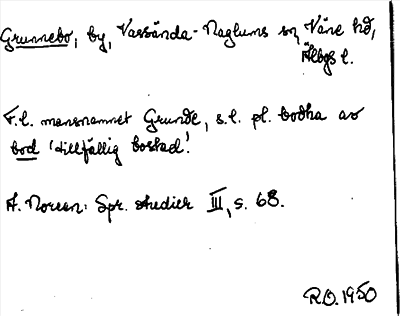 Grunnebo, by, Vassända-Naglums sn, Väne hd,
Älvbgs l.
F.l. mansnamnet Grunde, s.l. pl. bodha av
bod 'tillfällig bostad'.
A. Noreen: Spr. studier III, s. 68.
R.O. 1950